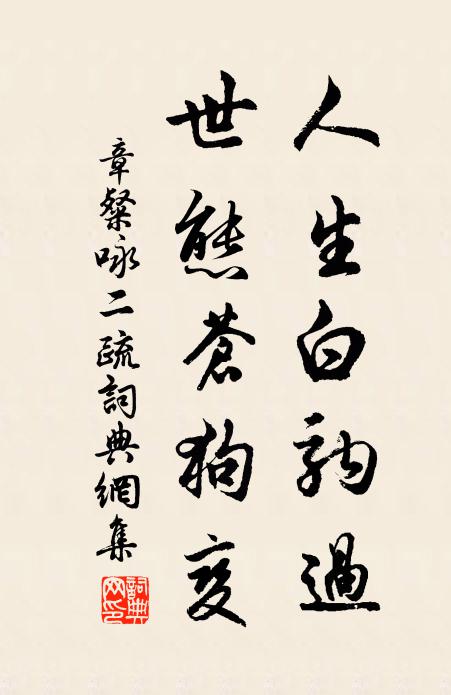 人生白駒過
世態蒼狗變
章粲咏二疏詞典網集
詞典网印